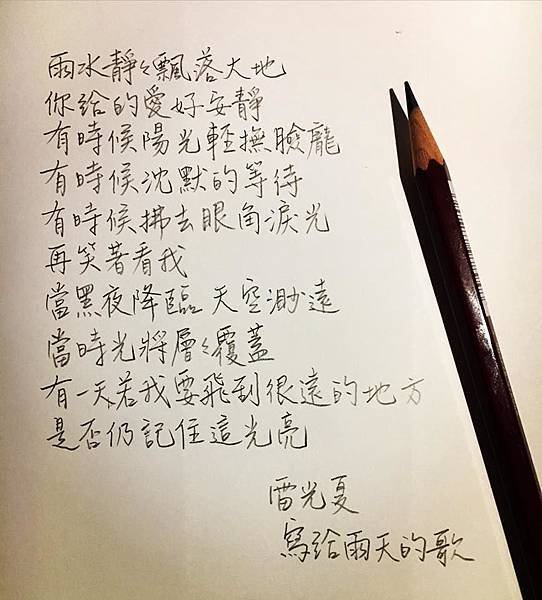 雨水靜々飄落大地
你給的愛好安靜
有時候陽光輕撫臉龐
有時候沈默的等待
有時候拂去眼角淚光
再笑著看我
當黑夜降臨 天空渺遠
當時光將層々覆蓋
有一天若我要飛到很遠的地方
是否仍記住這光亮
雷光夏
寫給雨天的歌